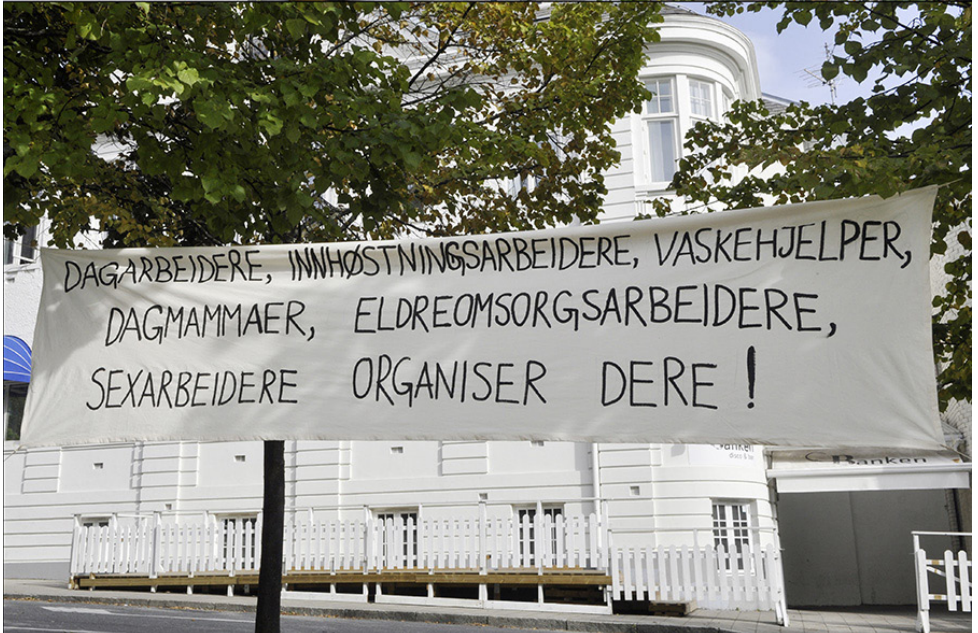 DAGARBEIDERE, INNHØSTNINGSARBEIDERE, VASKEHJELPER,
DAGMAMMAER, ELDREOMSORGSARBEIDERE,
SEXARBEIDERE ORGANISER DERE!
Banken